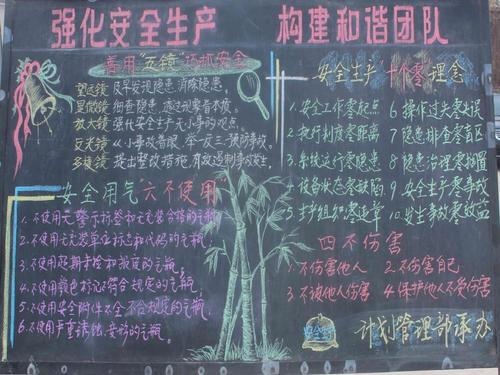 强化安全生产 构建和谐团队
善用“五镜”巧抓安全
望远镜 及早发现隐患,消除隐患。
显微镜 细查隐患,透过现象看本质。
放大镜 强化安全生产无小事的观点。
反光镜 以小事故警眼,举一反三,预防事故。
多棱镜 提出整改措施,有效遏制事故发生。
安全用气六不使用
1.不使用无警示标签和无充装合格的气瓶。
2.不使用无充装单位标志和代码的气瓶。
3.不使用超期未检和报废的气瓶。
4.不使用颜色标志不符合规定的气瓶。
5.不使用安全附件不全不合规定的气瓶。
6.不使用严重腐蚀、变形的气瓶。
安全生产“十个零”理念
1.安全工作零起点
2.执行制度零距离
3.系统运行零隐患
4.设备状态零缺陷
5.生产组织零违章
6.操作过失零失误
7.隐患排查零盲区
8.隐患治理零搁置
9.安全生产零事故
10.发生事故零效益
四不伤害
1.不伤害他人 2.不伤害自己
3.不被他人伤害 4.保护他人不受伤害
计划管理部承办